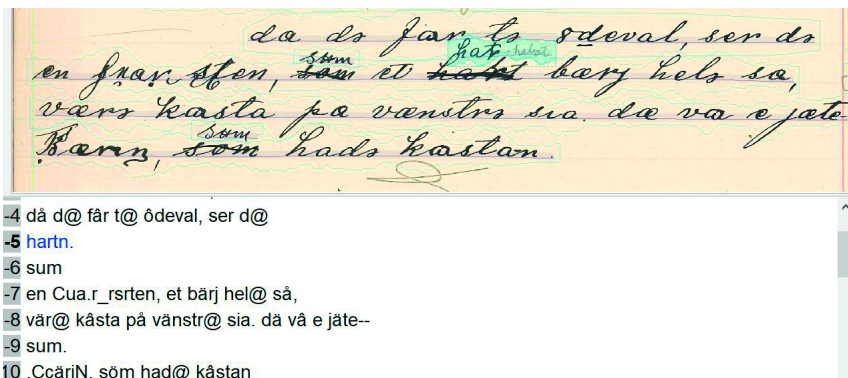 da də far tə ödeval, ser də
sum
en sten, som et bærj helə sa,
værə kasta pa vænstrə sia. dæ va e jæte-
sum
som hadə kastan.
-4 då d@ får t@ ôdeval, ser d@
-5 hartn.
-6 sum
-7 en Cua.r_rsrten, et bärj hel@ så,
-8 vär@ kâsta på vänstr@ sia. dä vâ e jäte--
-9 sum.
10 .CcäriN, söm had@ kâstan